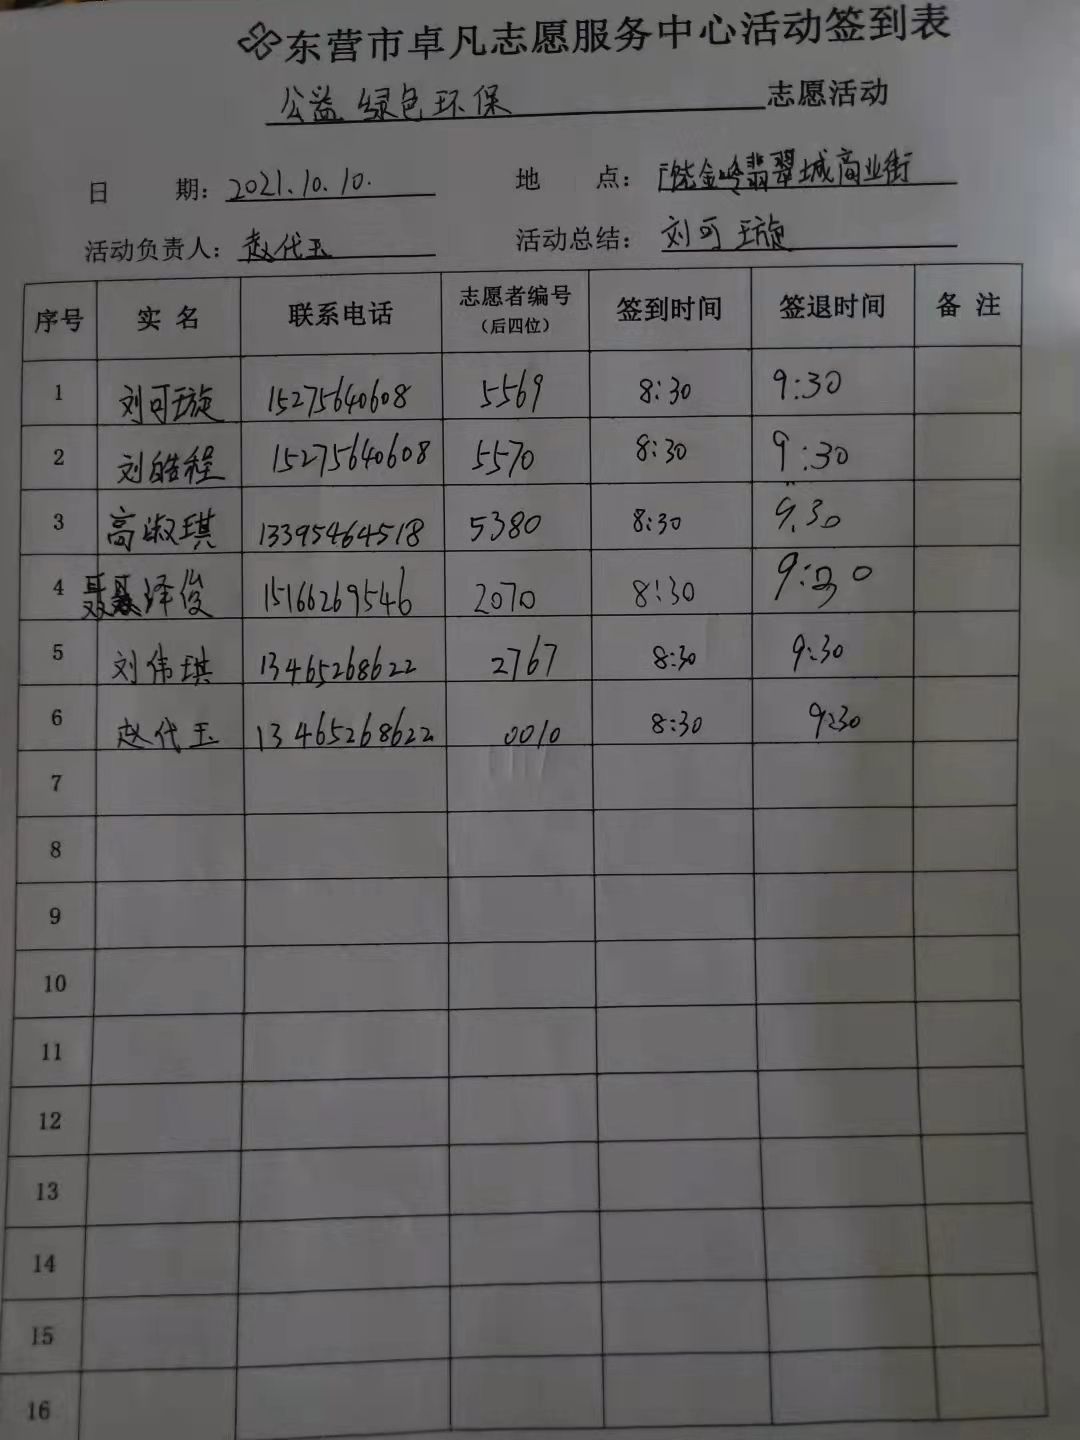 东营市卓凡志愿服务中心活动签到表
公益 绿色环保 志愿活动
日 期：2021.10.10. 地 点：广饶金岭翡翠城商业街
活动负责人：赵代玉 活动总结：刘可璇
序号 实名 联系电话 志愿者编号（后四位） 签到时间 签退时间 备注
1 刘可璇 15275640608 5569 8:30 9:30
2 刘皓程 15275640608 5570 8:30 9:30
3 高淑琪 13395464518 5380 8:30 9.30
4 聂泽俊 15166269546 2070 8:30 9:30
5 刘伟琪 13465268622 2767 8:30 9:30
6 赵代玉 13465268622 0010 8:30 9:30
7
8
9
10
11
12
13
14
15
16